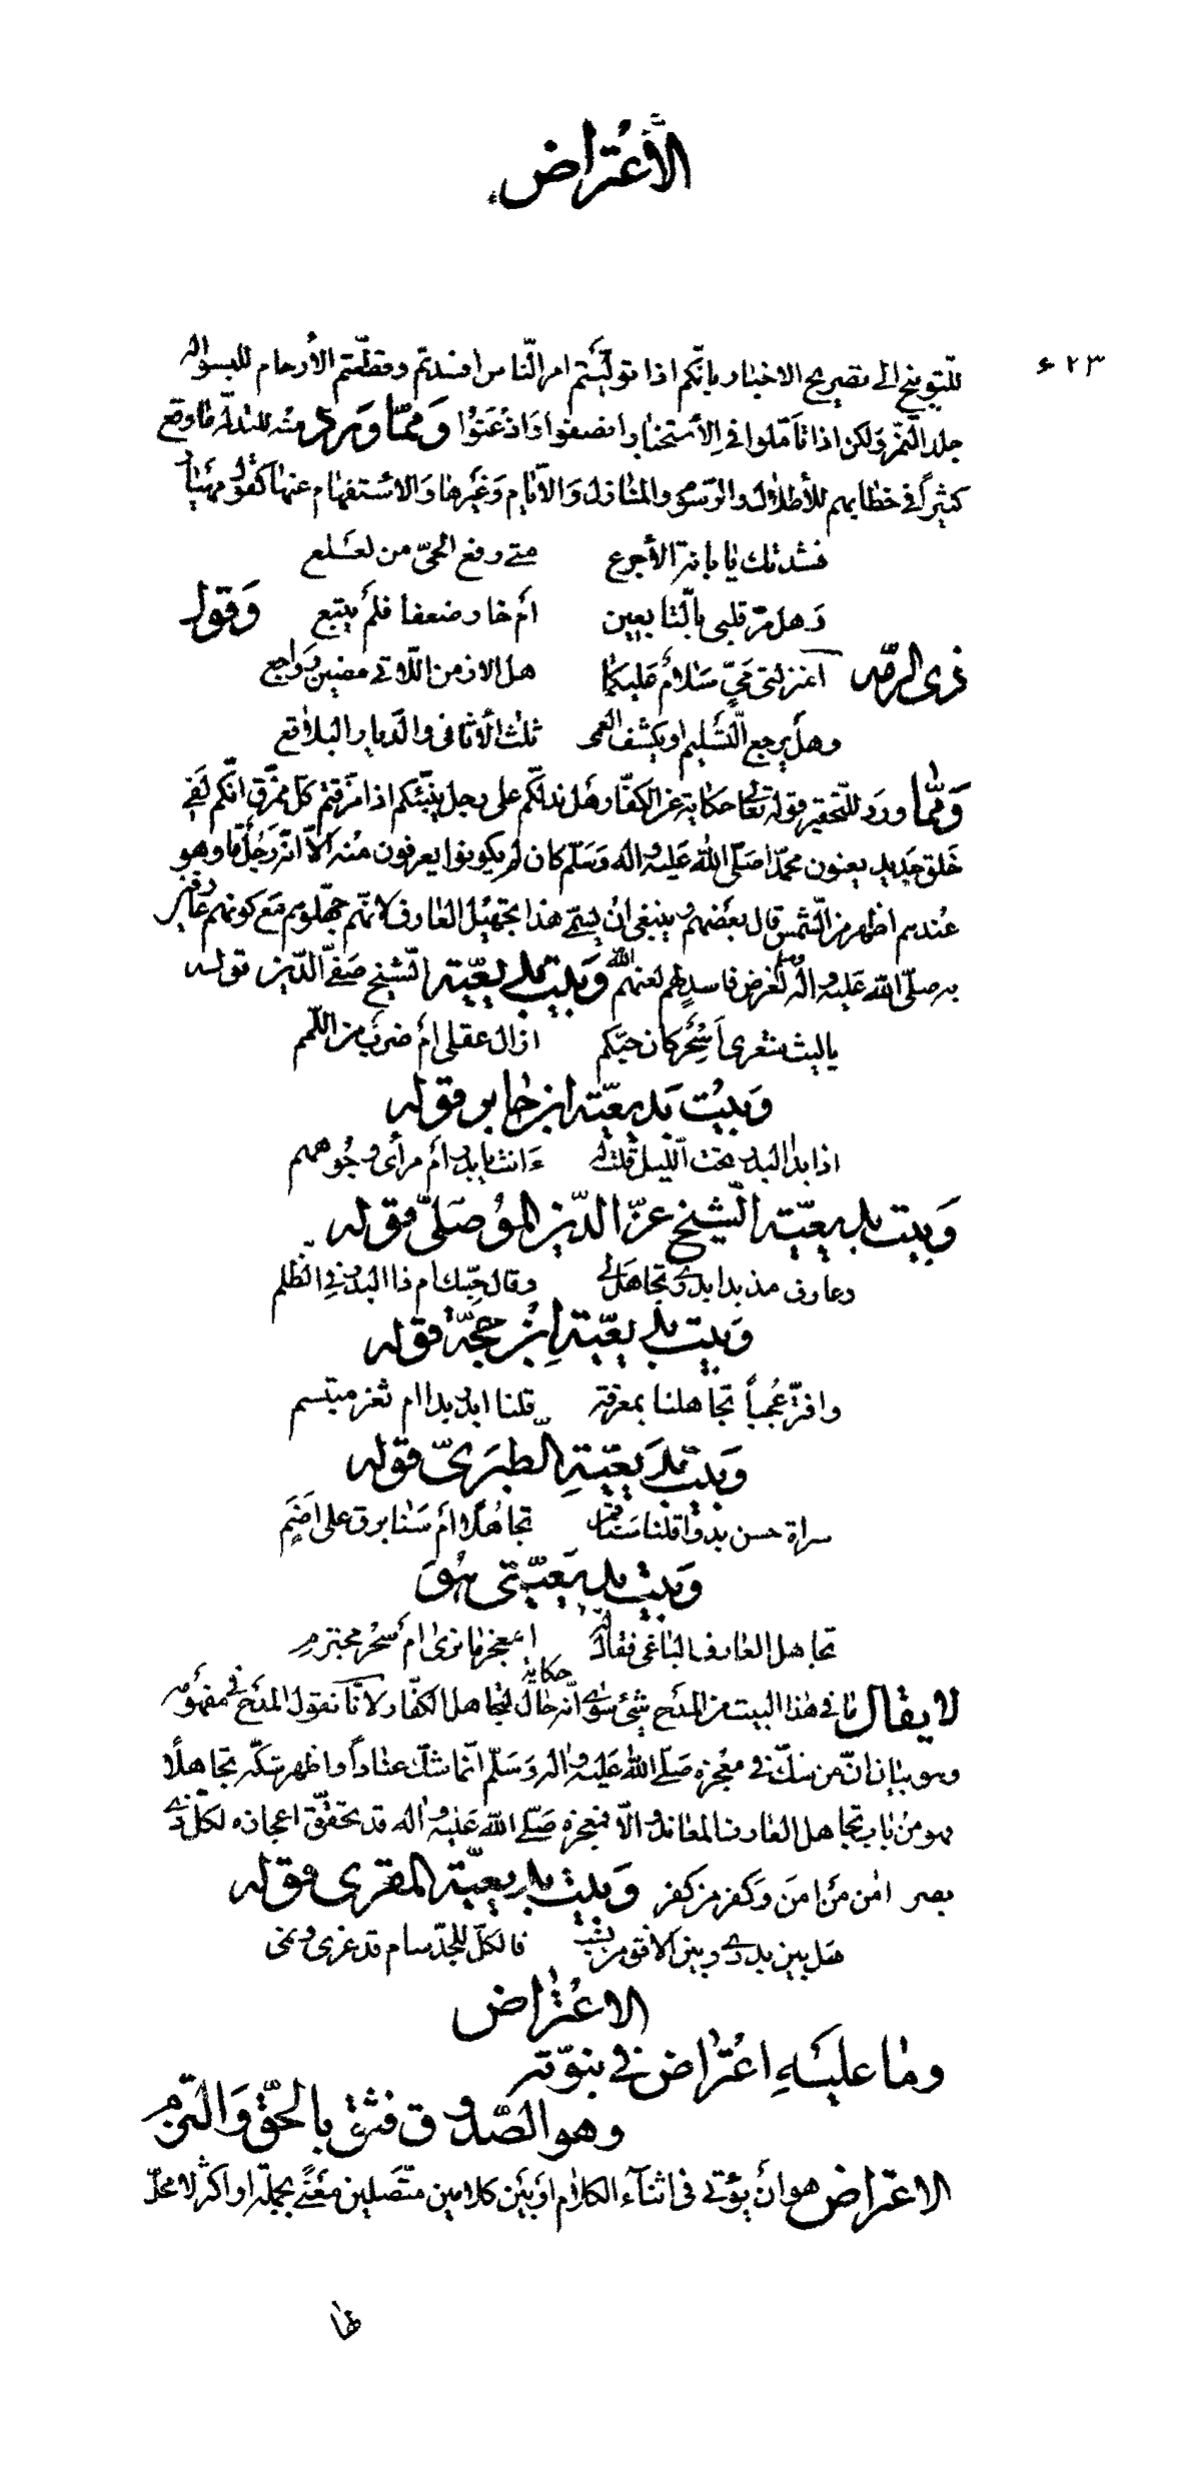 الأعتراض
٤٢٣
للتّوبيخ الى تصريح الاخبار بانّكم اذا تولّيتم امر النّاس افسدتم وقطّعتم الأرحام للبسوا له
جلد النّمر ولكن اذا تأمّلوا في الأستخبار انصفوا واذعنوا وممّا ورد منه للتدلّه ما وقع
كثيراً في خطابهم للأطلال والرّسوم والمنازل والأيّام وغيرها والاستفهام عنها كقول مهيار
نشدتك يا بانة الأجرع متى رفع الحيّ من لعلع
وهل مرّ قلبي بالتّابعين أم خار ضعفا فلم يتبع وقول
ذى الرمّه أمنزلتي ميّ سلام عليكما هل الازمن اللّاتي مضين رواجع
وهل يرجع التّسليم او يكشف العمى ثلث الأثافي والدّيار البلاقع
وممّا ورد للتّحقير قوله تعالى حكاية عن الكفّار هل ندلّكم على رجل ينبّئكم اذا مزّقتم كلّ ممزّق انّكم لفي
خلق جديد يعنون محمّدا صلّى الله عليه واله وسلّم كان لم يكونوا يعرفون منه الّا انّه رجل ما وهو
عندهم اظهر من الشّمس قال بعضهم وينبغي ان يسمّى هذا تجهيل العارف لانّهم جهّلوهم مع كونهم عارفين
به صلّى الله عليه واله وسلم لغرض فاسد لهم لعنهم الله وبيت بديعيّة الشّيخ صفيّ الدّين قوله
ياليت شعرى أسحر كان حبّكم ازال عقلي أم ضرب من اللّمم
وبيت بديعيّته ابن جابر قوله
اذا بدا البدر تحت اللّيل قلت له ءانت يا بدر أم مرأى وجوههم
وبيت بديعيّة الشّيخ عزّ الدّين الموصلىّ قوله
وعارف مذ بدا بدرى تجاهل لى وقال حبّك ام ذا البدر في الظّلم
وبيت بديعيّة ابن حجّة قوله
وافترّ عُجباً تجاهلنا بمعرفة قلنا ابدر بدا ام ثغر مبتسم
وبيت بديعيّة الطّبريّ قوله
سراة حسن بدوا قلنا سنا تجاهلا أم سنا برق على اضم
وبيت بديعيّتي هو
تجاهل العارف الباغي فقال له أمعجز ما نرى أم سحر مجترم
لا يقال ما في هذا البيت من المدح شيئ سوى انّه حكاية حال تجاهل الكفّار لانّا نقول المدح في مفهومه
وهو بيان انّ من شكّ في معجزه صلّى الله عليه واله وسلّم انّما شكّ عناداً واظهر شكّه تجاهلًا
فهو من باب تجاهل العارف المعاند والّا فمعجزه صلّى الله عليه واله قد تحقّق اعجازه لكلّ ذي
بصر امن من امن وكفر من كفر وبيت بديعيّة المقري قوله
هل بين بدرى وبين الافق من فالكلّ للجدّ سام قد غزى ونمى
الاعتراض
وما عليه اعتراض في نبوّته
وهو الصّدوق فثق بالحقّ والتزم
الاعتراض هو أن يؤتى في اثناء الكلام أو بين كلامين متّصلين معنًى بجملة او اكثر لا محلّ
لها